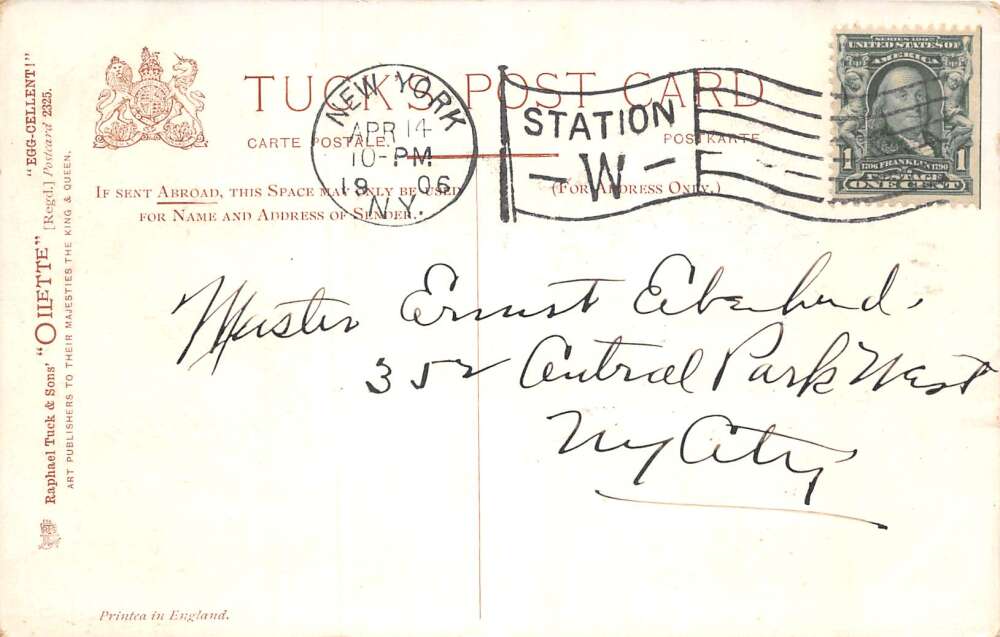 TUCK'S POST CARD
CARTE POSTALE.
POSTKARTE
IF SENT ABROAD, THIS SPACE MAY ONLY BE USED
FOR NAME AND ADDRESS OF SENDER.
(FOR ADDRESS ONLY.)
NEW YORK
APR 14
10-PM
19 06
N.Y.
STATION
- W -
SERIES 1902
UNITED STATES OF
AMERICA
1706 FRANKLIN 1790
1 1
POSTAGE
ONE CENT
Raphael Tuck & Sons' "OILETTE" [Regd.] Postcard 2325. "EGG-CELLENT!"
ART PUBLISHERS TO THEIR MAJESTIES THE KING & QUEEN.
Master Ernst Eberhard.
352 Central Park West
NY City
Printed in England.